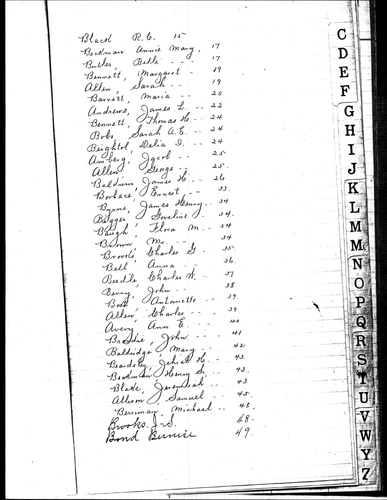 Black R. C. 15
Beckman Annie Mary, 17
Butler, Belle - - - 17
Bennett, Margaret - 19
Allen, Sarah - - - 19
Barrett, Maria - - - 20
Andrews, James L. - - 22
Bennett, Thomas H. - - 24
Bobo, Sarah A. E. - - 24
Beightol, Delia D. - - 24
Amberg, Jacob - - 25
Allen George - - - 25.
Baldwin, James H. - - 26
Ernest - - 33.
Byrne, James Henry. - 34
34.
Baugh, Flora M. - - 34
Brown Mr. - - - 34
Brooks, Charles G. 35
Ball Anna - - 36.
Beedle, Charles W. - 37
Berry, John - - 38
Antoinette - - 39.
Allen, Charles - - 39.
Avery Ann E. - - 40
John - - - 41
Baldridge, Mary - - 42
Beardsley, H. - - 43.
Beckman Henry S. - - 43.
Blade, Jeremiah - - 43
Allison, Samuel - - 45.
Berriman, Michael - - 45.
Brooks, J. S. 48.
Bond Bernice 49.
C
D
E
F
G
H
I
J
K
L
M
M
N
O
P
Q
R
S
T
U
V
W
Y
Z